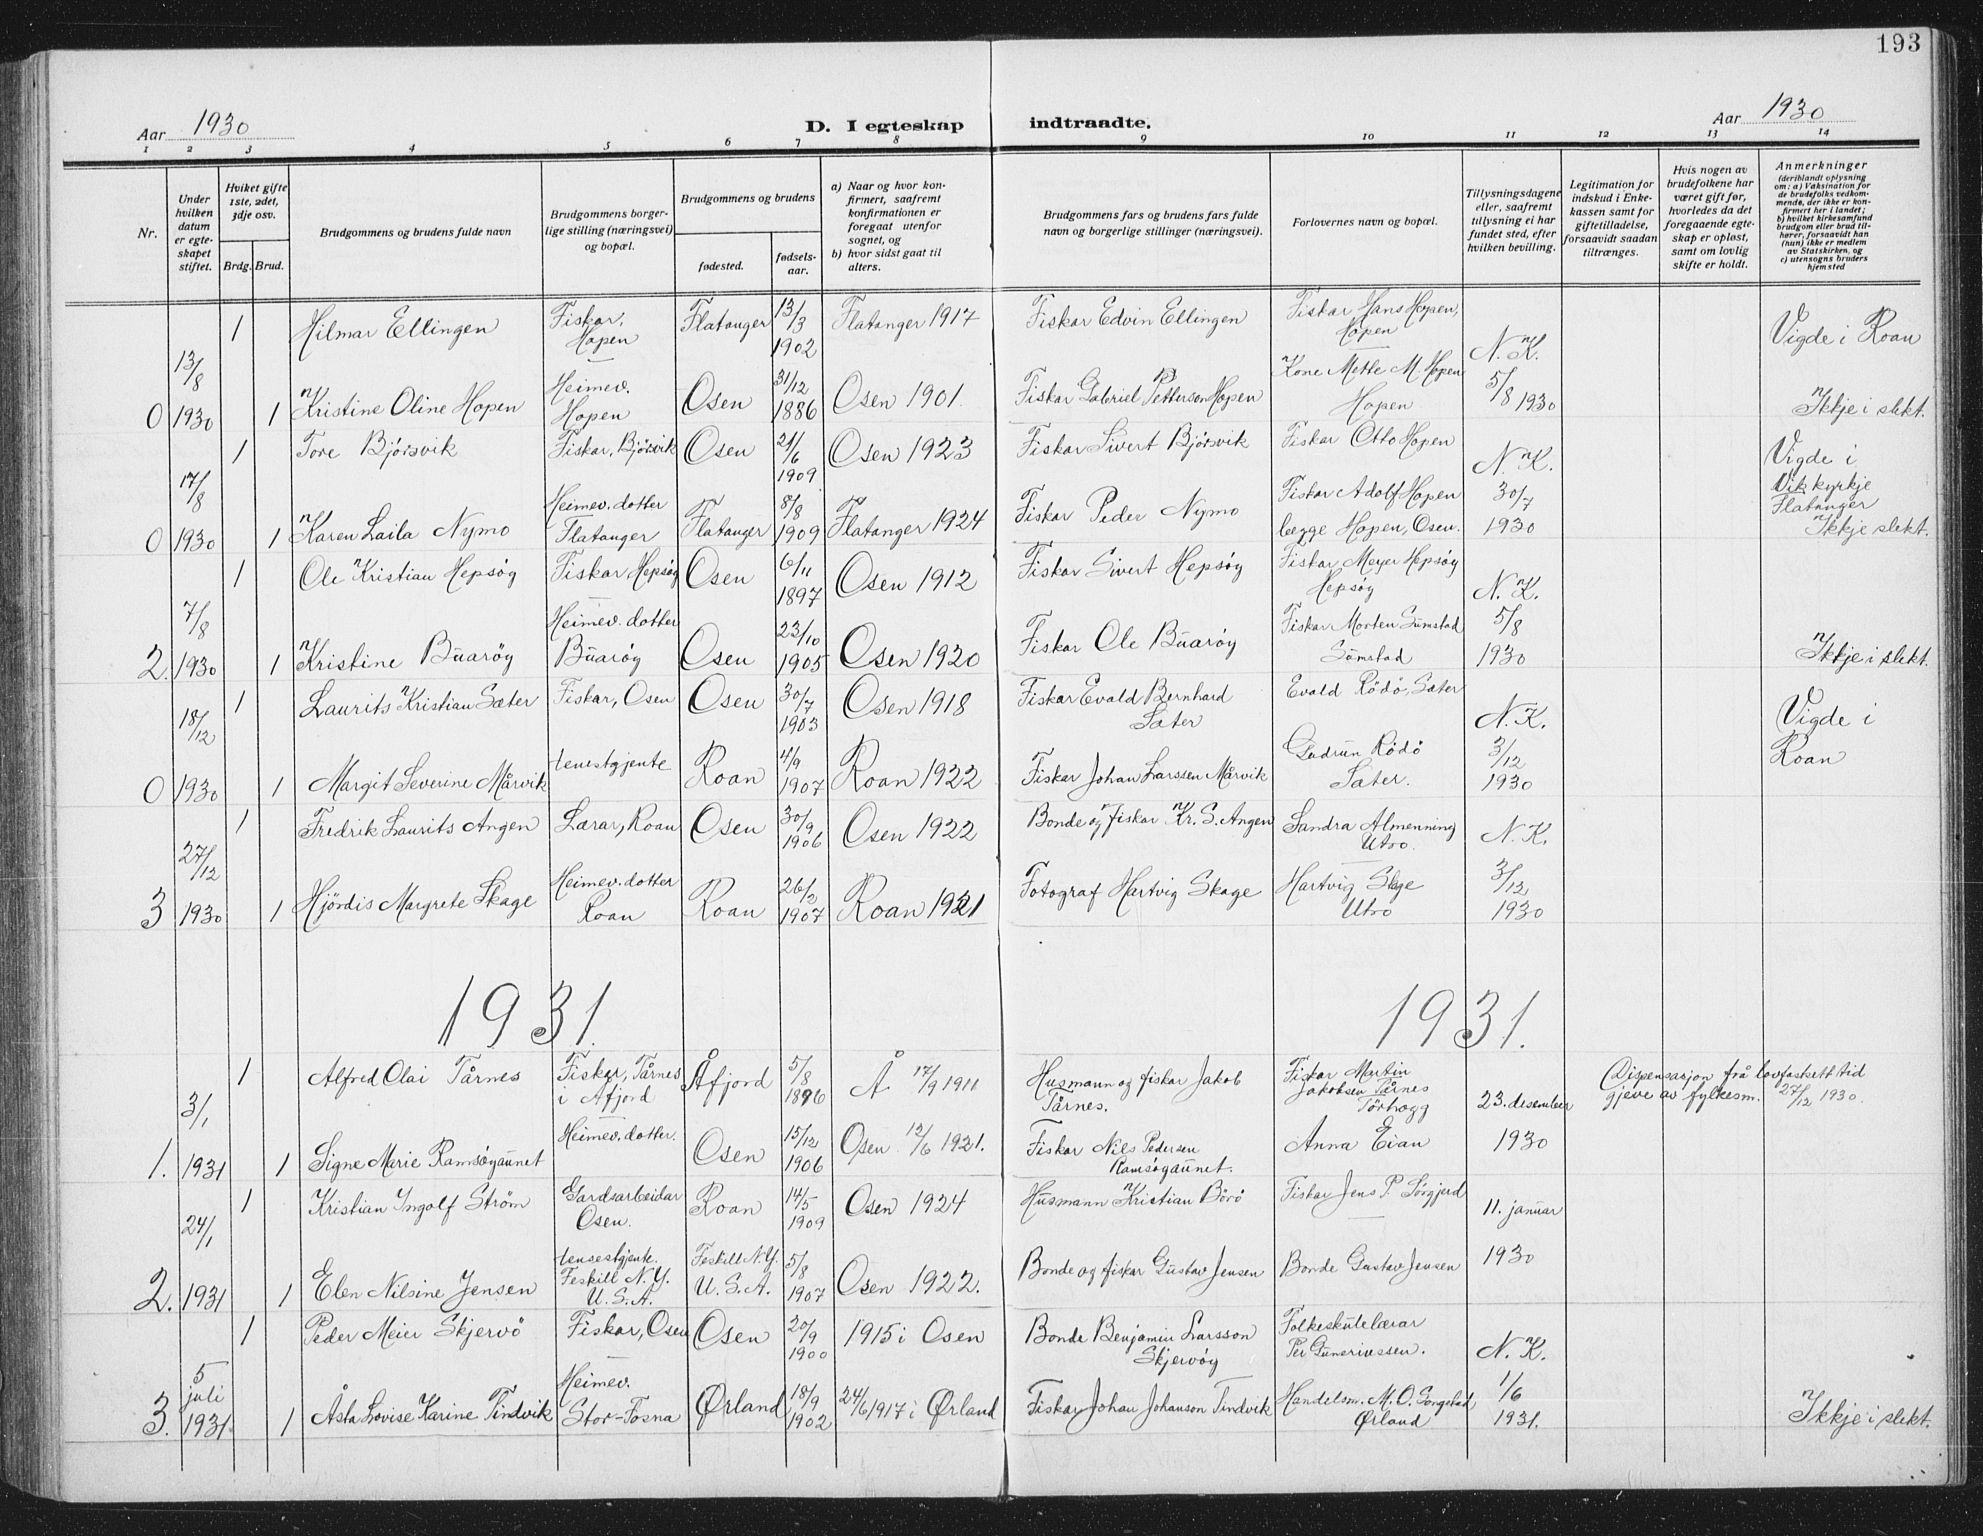 193
Aar 1930
D. I egteskap indtraadte.
Aar 1930
1 2 3 4 5 6 7 8 9 10 11 12 13 14
Nr.
Under hvilken datum er egteskapet stiftet.
Hvilket gifte 1ste, 2det, 3dje osv.
Brdg. Brud.
Brudgommens og brudens fulde navn
Brudgommens borgerlige stilling (næringsvei) og bopæl.
Brudgommens og brudens
fødested.
fødselsaar.
a) Naar og hvor konfirmert, saafremt konfirmationen er foregaat utenfor sognet, og
b) hvor sidst gaat til alters.
Brudgommens fars og brudens fars fulde navn og borgerlige stillinger (næringsvei).
Forlovernes navn og bopæl.
Tillysningsdagene eller, saafremt tillysning ei har fundet sted, efter hvilken bevilling.
Legitimation for indskud i Enkekassen samt for giftetilladelse, forsaavidt saadan tiltrænges.
Hvis nogen av brudefolkene har været gift før, hvorledes da det foregaaende egteskap er opløst, samt om lovlig skifte er holdt.
Anmerkninger
(deriblandt oplysning om: a) Vaksination for de brudefolks vedkommende, der ikke er konfirmert her i landet; b) hvilket kirkesamfund brudgom eller brud tilhører, forsaavidt han (hun) ikke er medlem av Statskirken, og c) utensogns bruders hjemsted
13/8 1 Hilmar Ellingen Fiskar, Hopen Flatanger 13/3 1902 Flatanger 1917 Fiskar Edvin Ellingen Fiskar Hans Hopen, Hopen N. K. Vigde i Roan
0 1930 1 Kristine Oline Hopen Heimev. Hopen Osen 31/12 1886 Osen 1901 Fiskar Gabriel Petterson Hopen Kone Mette M. Hopen Hopen 5/8 1930 Ikkje i slekt.
17/8 1 Tore Bjørsvik Fiskar, Bjørsvik Osen 21/6 1909 Osen 1923 Fiskar Sivert Bjørsvik Fiskar Otto Hopen N. K. Vigde i Vik kyrkje Flatanger
0 1930 1 Karen Laila Nymo Heimev. dotter Flatanger Flatanger 8/8 1909 Flatanger 1924 Fiskar Peder Nymo Fiskar Adolf Hopen begge Hopen, Osen. 30/7 1930 Ikkje slekt.
7/8 1 Ole Kristian Hepsøy Fiskar Hepsøy Osen 6/11 1897 Osen 1912 Fiskar Sivert Hepsøy Fiskar Meyer Hepsøy Hepsøy N. K.
2. 1930 1 Kristine Buarøy Heimev. dotter Buarøy Osen 23/10 1905 Osen 1920 Fiskar Ole Buarøy Fiskar Morten Sumstad Sumstad 5/8 1930 Ikkje i slekt.
18/12 1 Laurits Kristian Sæter Fiskar, Osen Osen 30/7 1903 Osen 1918 Fiskar Evald Bernhard Sæter Evald Rödö, Sæter N. K. Vigde i Roan
0 1930 1 Margit Severine Mårvik tenestgjente Roan 4/9 1907 Roan 1922 Fiskar Johan Larssen Mårvik Gudrun Rødø Sæter. 3/12 1930
27/12 1 Fredrik Laurits Angen Lærar, Roan Osen 30/9 1906 Osen 1922 Bonde og fiskar Kr. S. Angen Sandra Almenning Utro. N. K.
3 1930 1 Hjördis Margrete Skage Heimev. dotter Roan Roan 26/2 1907 Roan 1921 Fotograf Hartvig Skage Hartvig Skage Utro 3/12 1930
1931. 1931.
3/1 1 Alfred Olai Tårnes Fiskar, Tårnes i Åfjord Åfjord 5/8 1896 Å 17/9 1911 Husmann og fiskar Jakob Tårnes. Fiskar Martin Jakobsen Tårnes Törhogg 23. desember Dispensasjon frå lovfastsett tid gjeve av fylkesm. 27/12 1930.
1. 1931 1 Signe Marie Ramsøyaunet Heimev. dotter. Osen 15/12 1906 Osen 12/6 1921. Fiskar Nils Pedersen Ramsøyaunet. Anna Eian 1930
24/1 1 Kristian Yngolf Strøm Gardsarbeidar Osen. Roan 14/5 1909 Osen 1924 Husmann Kristian Börö Fiskar Jens P. Sörgjerd 11. januar
2. 1931 1 Elen Nilsine Jensen tenestgjente. Feskill N.Y. U.S.A. Feskill N.Y. U.S.A. 5/8 1907 Osen 1922. Bonde og fiskar Gustav Jensen Bonde Gustav Jensen 1930
5 juli 1 Peder Meier Skjervö Fiskar, Osen Osen 20/9 1900 1915 i Osen Bonde Benjamin Larsson Skjervøy Folkeskulelærar Per Gunerivssen. N. K.
3. 1931 1 Åsta Lovise Karine Tindvik Heimev. Stor-Fosna Ørland 18/9 1902 24/6 1917 i Ørland Fiskar Johan Johanson Tindvik Handelsm. M. O. Songstad Ørland 1/6 1931. Ikkje i slekt.